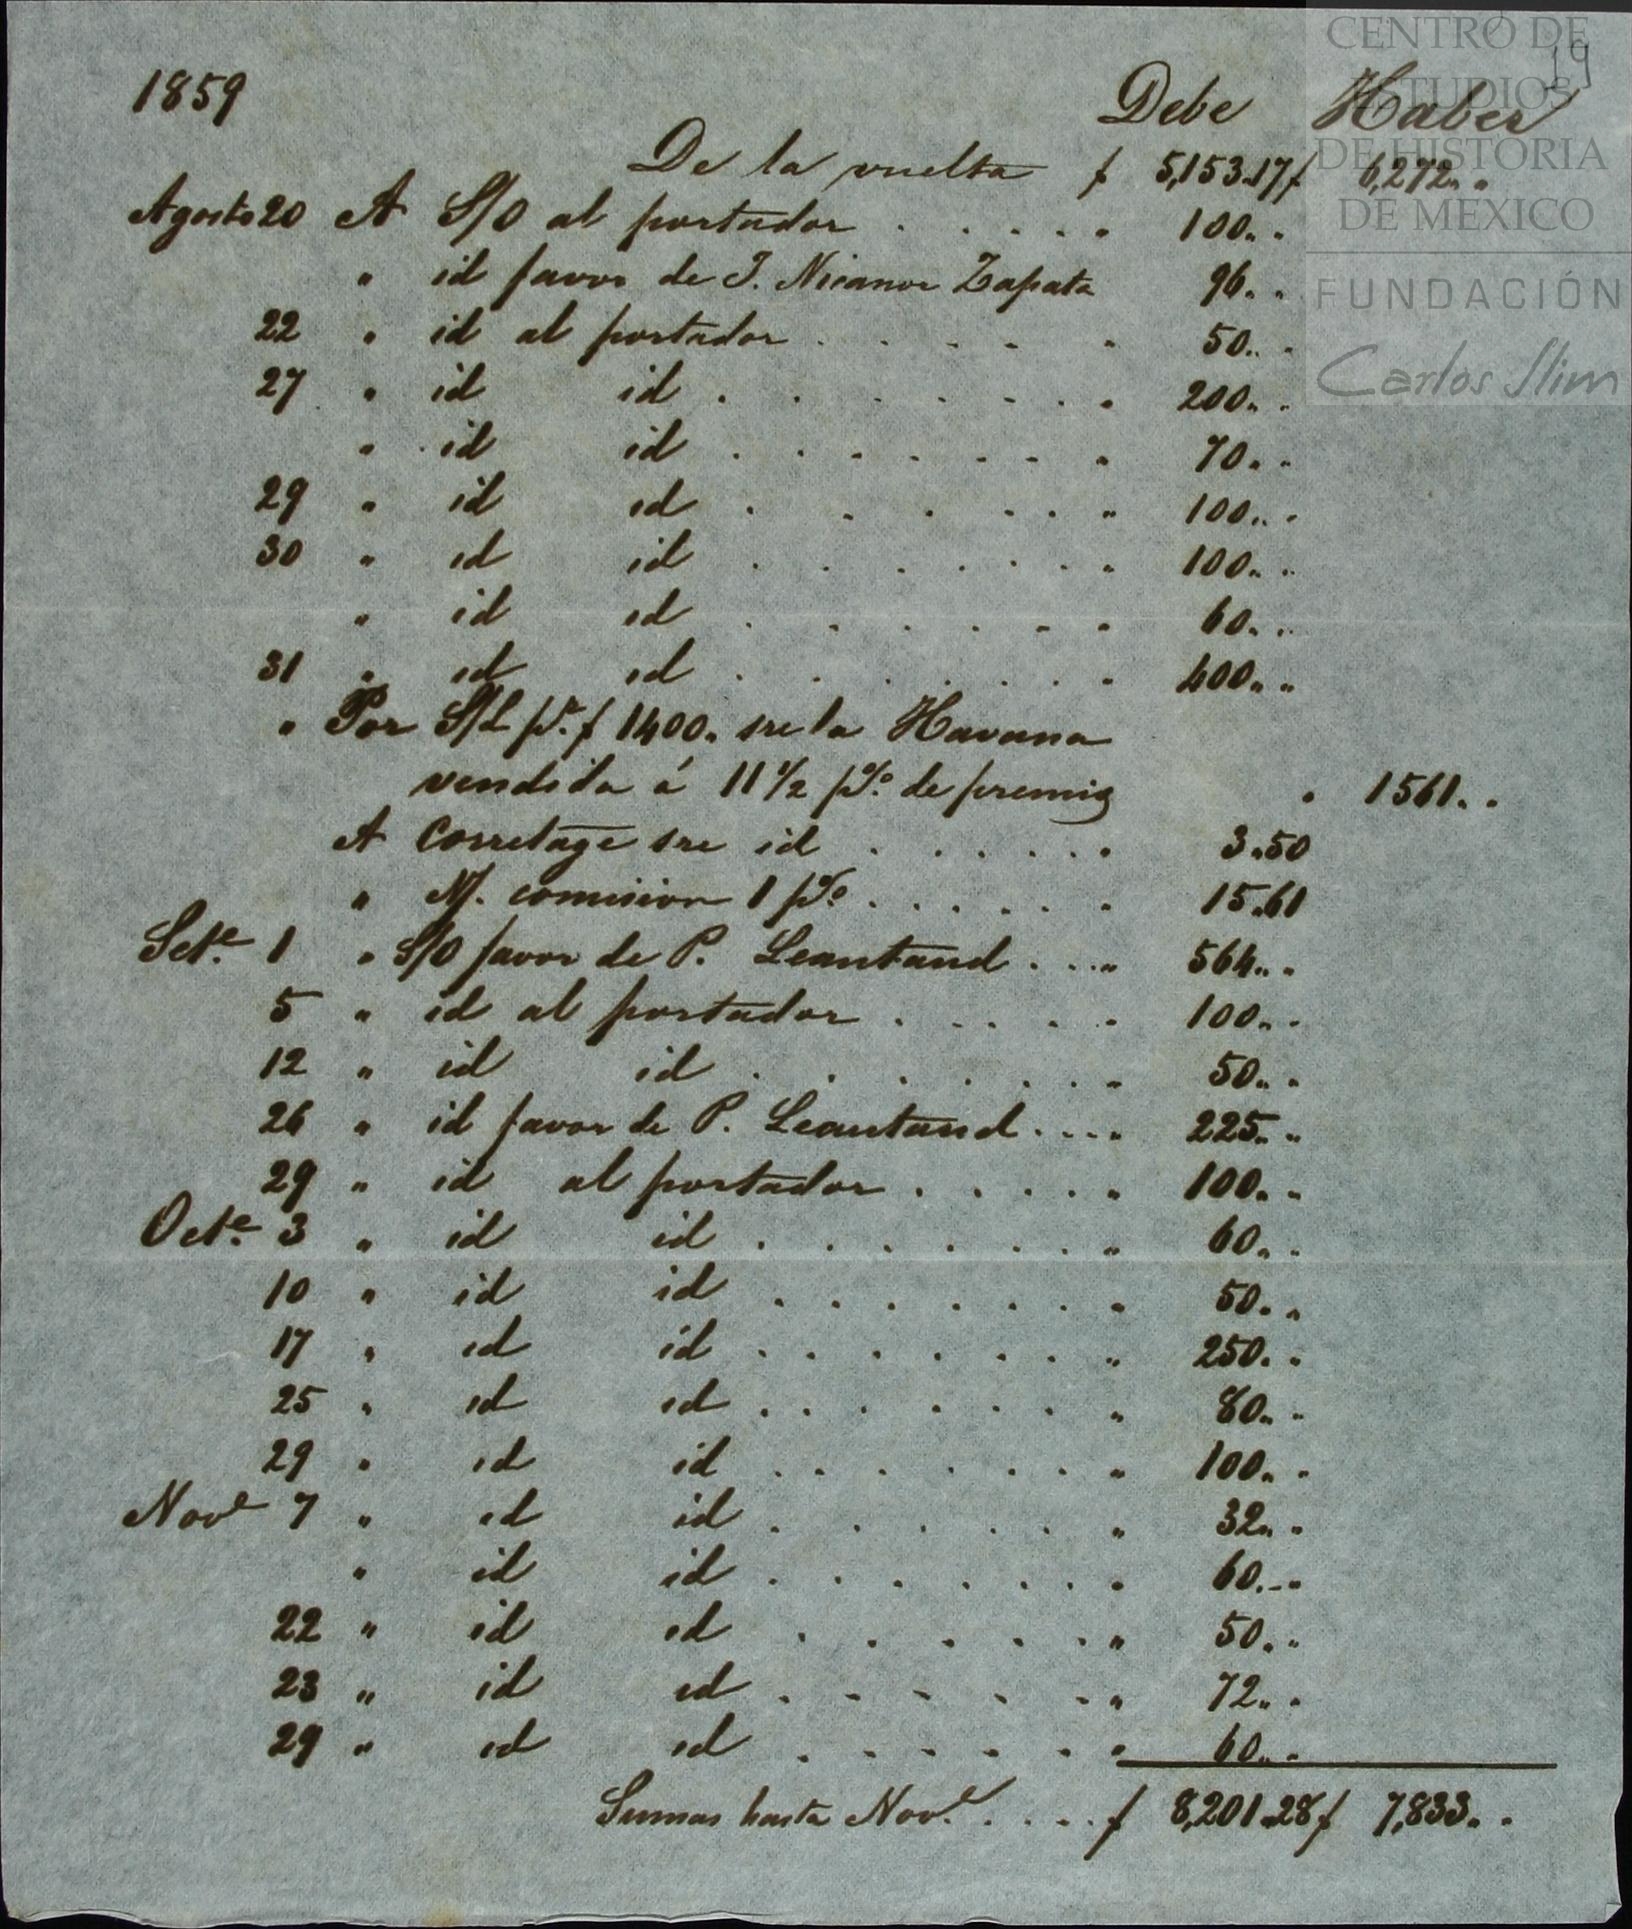 CENTRO DE
ESTUDIOS
DE HISTORIA
DE MEXICO
FUNDACIÓN
Carlos Slim
19
1859 Debe Haber
De la vuelta $ 5,153.17 $ 6,272.. "
Agosto 20 A S/O al portador . . . . " 100.. "
" id favor de J. Nicanor Zapata 96.. "
22 " id al portador . . . . " 50.. "
27 " id id . . . . . . " 200.. "
" id id . . . . . . " 70.. "
29 " id id . . . . . " 100.. "
30 " id id . . . . . . " 100.. "
" id id . . . . . . " 60.. "
31 " id id . . . . . . " 400.. "
" Por S/L pr. $ 1400.. sre la Havana
vendida á 11 1/2 p% de premio " 1561.. "
A Corretage sre id . . . . . " 3.50
" N/. comision 1 p% . . . . . " 15.61
Sete. 1 " S/O favor de P. Leautaud . . . " 564.. "
5 " id al portador . . . . " 100.. "
12 " id id . . . . . . " 50.. "
26 " id favor de P. Leautaud . . . " 225.. "
29 " id al portador . . . . " 100.. "
Octe. 3 " id id . . . . . . " 60.. "
10 " id id . . . . . . " 50.. "
17 " id id . . . . . . " 250.. "
25 " id id . . . . . . " 80.. "
29 " id id . . . . . . " 100.. "
Nove 7 " id id . . . . . . " 32.. "
" id id . . . . . . " 60.. "
22 " id id . . . . . " 50.. "
23 " id id . . . . . " 72.. "
29 " id id . . . . . " 60.. "
Sumas hasta Nove. . . . . $ 8,201.28 $ 7,833.. "